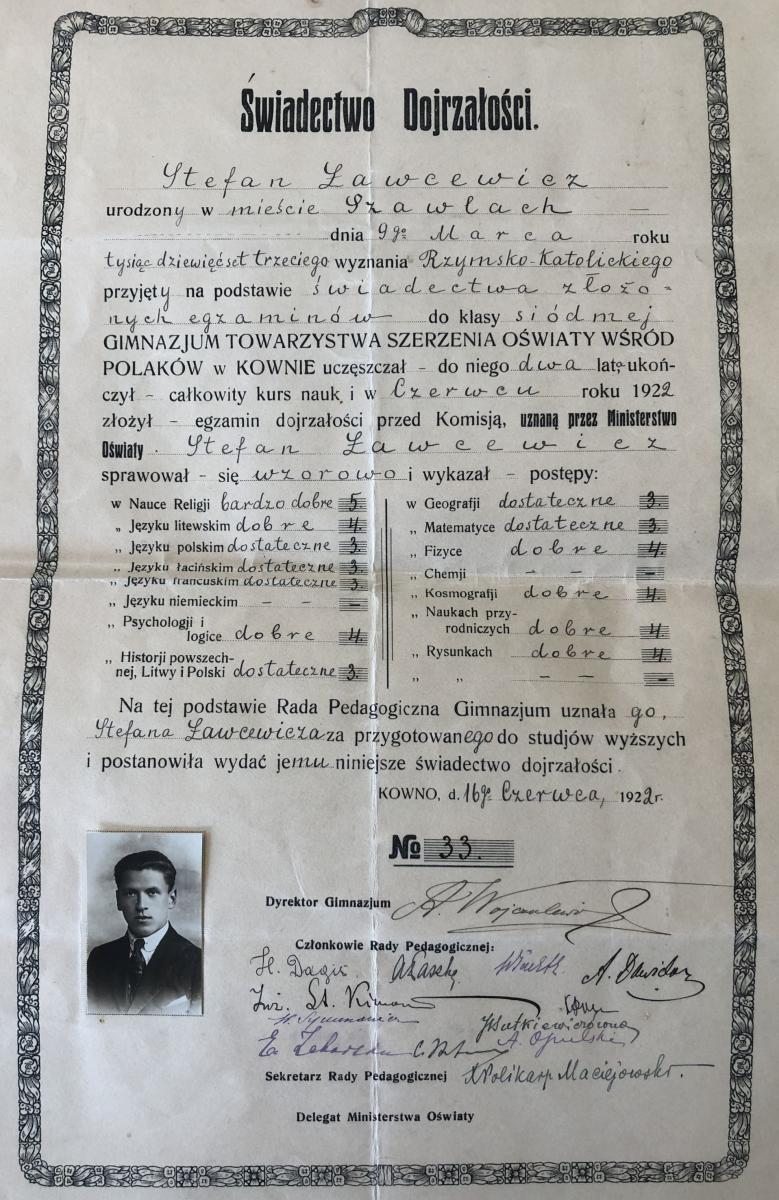 Świadectwo Dojrzałości.
Stefan Ławcewicz
urodzony w mieście Szawłach —
dnia 9go Marca roku
tysiąc dziewięćset trzeciego wyznania Rzymsko-Katolickiego
przyjęty na podstawie świadectwa złożo-
nych egzaminów do klasy siódmej
GIMNAZJUM TOWARZYSTWA SZERZENIA OŚWIATY WŚRÓD
POLAKÓW w KOWNIE uczęszczał - do niego dwa lat, ukoń-
czył - całkowity kurs nauk, i w Czerwcu roku 1922
złożył - egzamin dojrzałości przed Komisją, uznaną przez Ministerstwo
Oświaty. Stefan Ławcewicz
sprawował - się wzorowo i wykazał - postępy:
w Nauce Religji bardzo dobre 5.
„ Języku litewskim dobre 4.
„ Języku polskim dostateczne 3.
„ Języku łacińskim dostateczne 3.
„ Języku francuskim dostateczne 3.
„ Języku niemieckim - - -
„ Psychologji i
logice dobre 4.
„ Historji powszech-
nej, Litwy i Polski dostateczne 3.
w Geografji dostateczne 3.
„ Matematyce dostateczne 3.
„ Fizyce dobre 4.
„ Chemji - - - -
„ Kosmografji dobre 4.
„ Naukach przy-
rodniczych dobre 4.
„ Rysunkach dobre 4.
„ „ - - -
Na tej podstawie Rada Pedagogiczna Gimnazjum uznała go,
Stefana Ławcewicza za przygotowanego do studjów wyższych
i postanowiła wydać jemu niniejsze świadectwo dojrzałości.
KOWNO, d. 16go Czerwca, 1922 r.
No 33.
Dyrektor Gimnazjum
Członkowie Rady Pedagogicznej:
H. Dagis A. Dawidow
Inż. St.
J. Rutkiewiczówna
A. Opulski
Sekretarz Rady Pedagogicznej X Polikarp Maciejowski.
Delegat Ministerstwa Oświaty